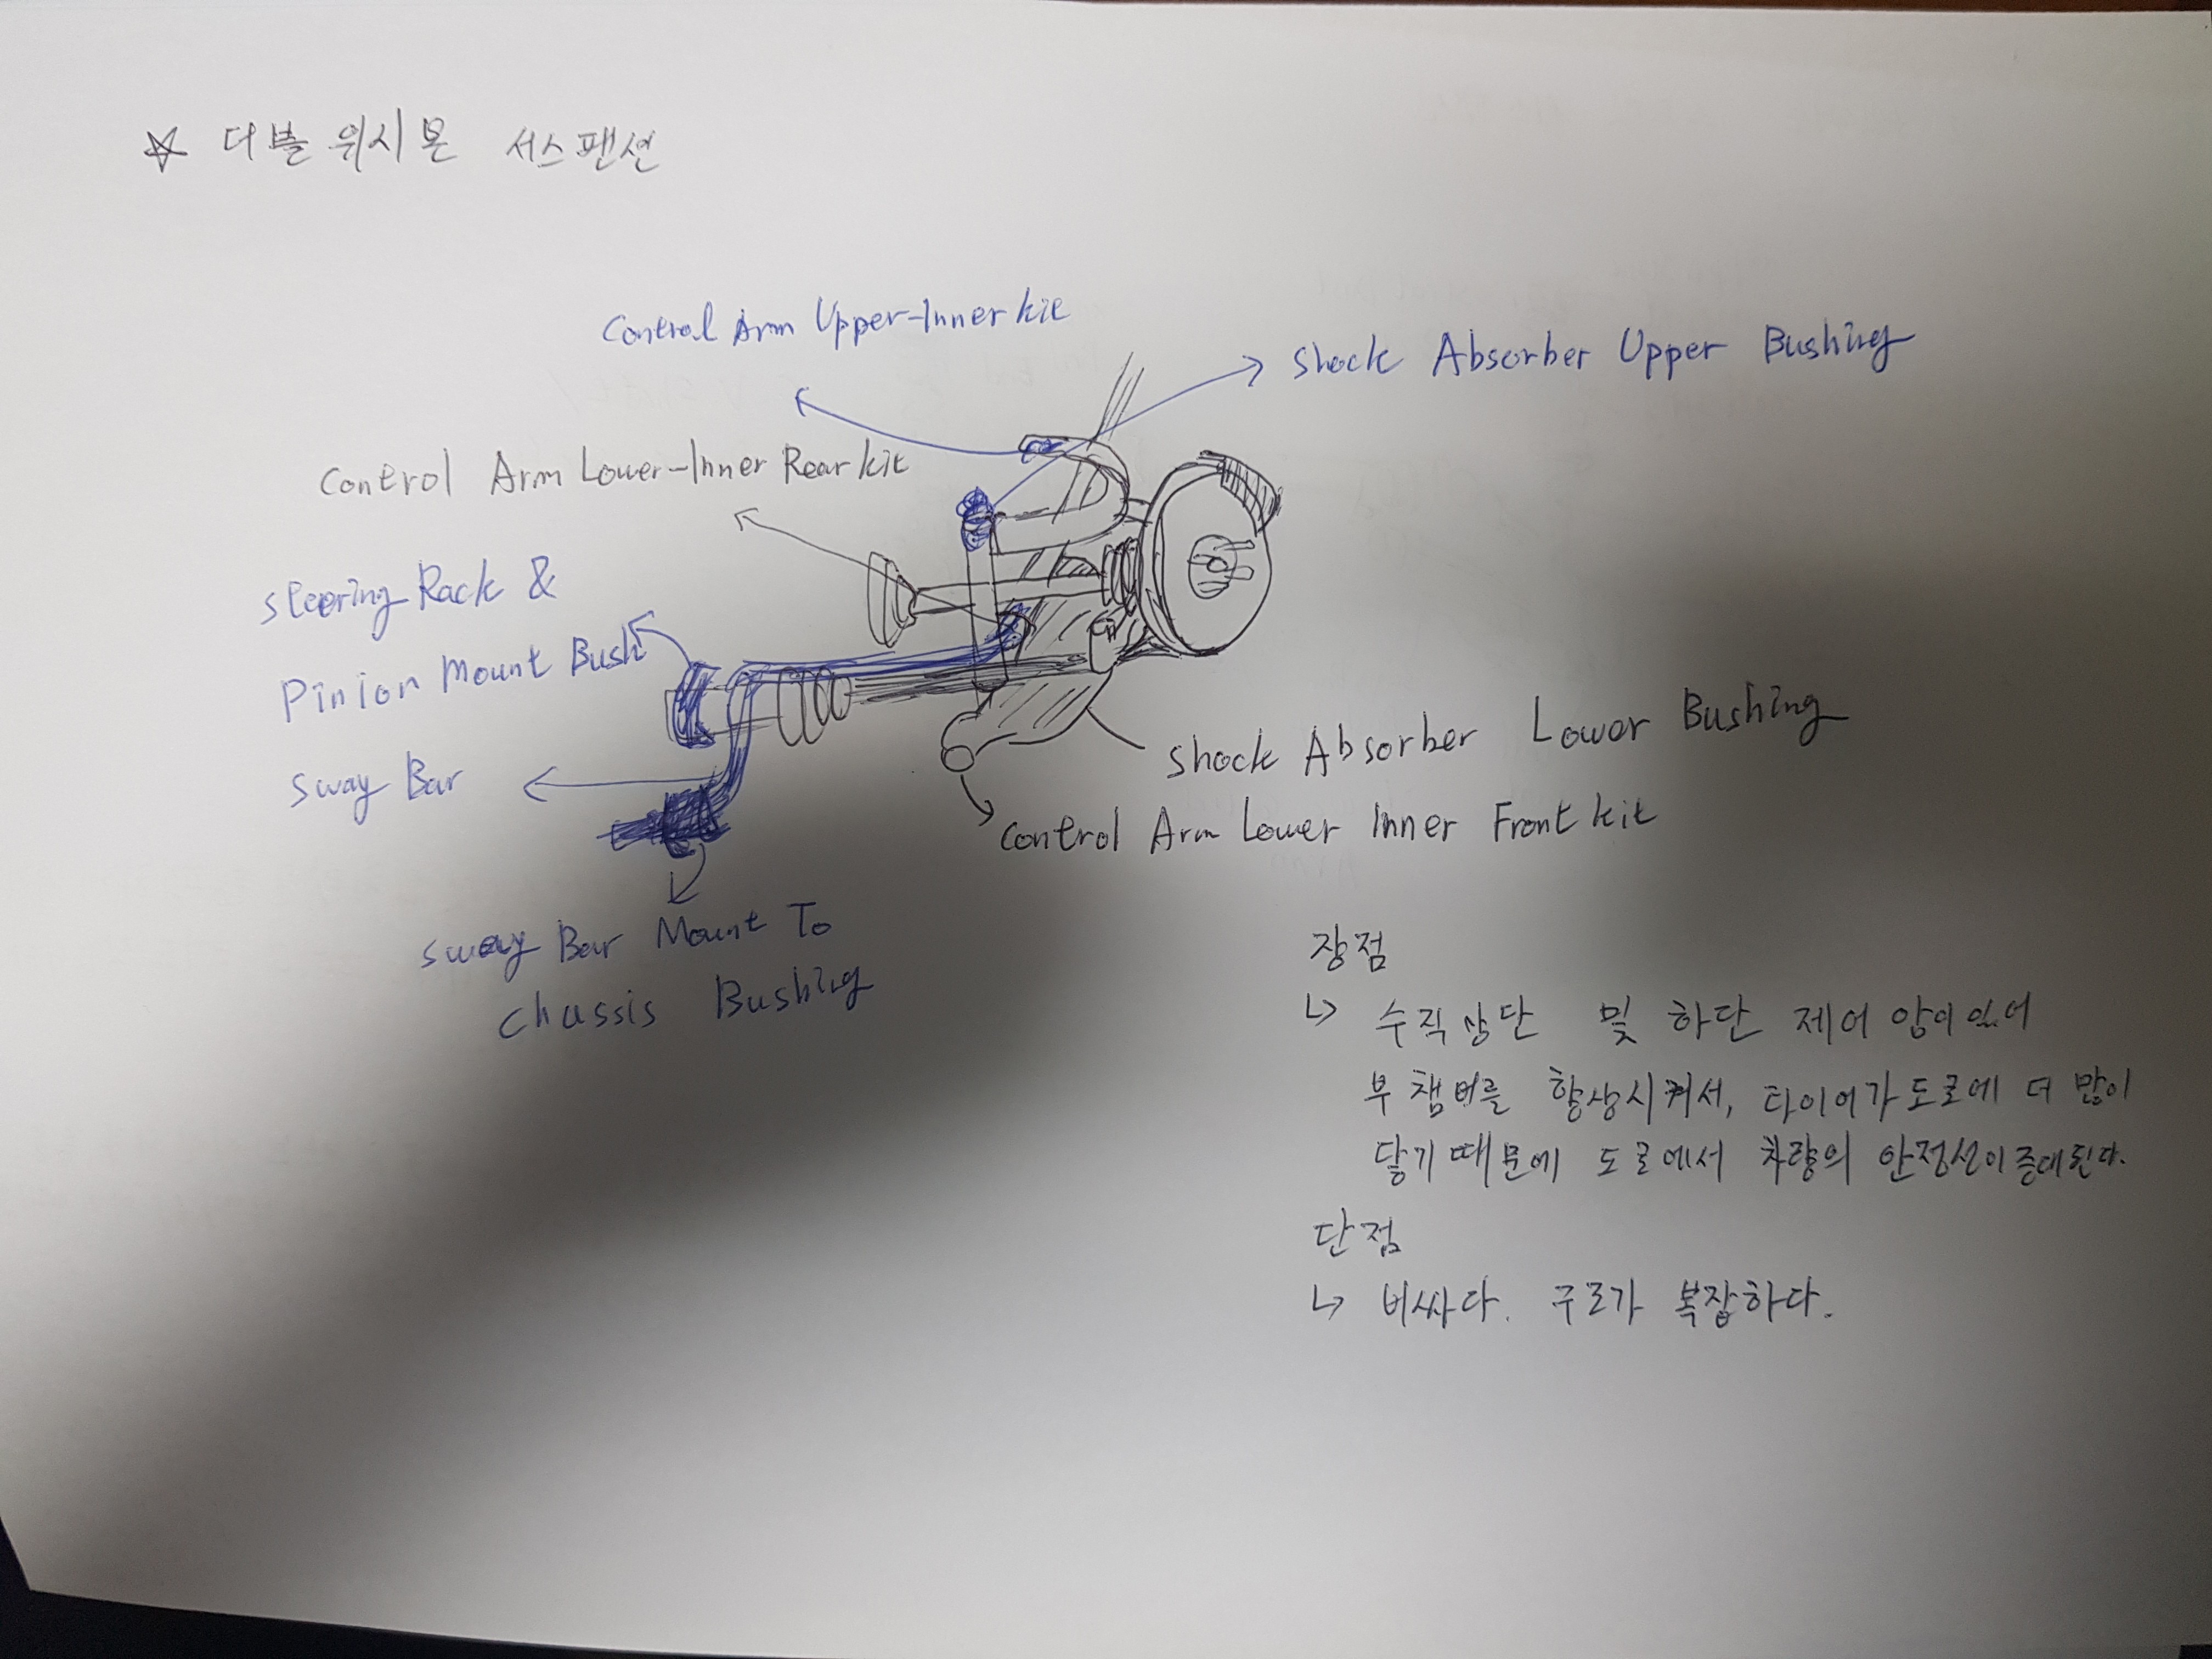 ☆ 더블 위시본 서스펜션
Control Arm Upper-Inner kit
Control Arm Lower-Inner Rear kit
Steering Rack &
Pinion Mount Bush
Sway Bar
Sway Bar Mount To
Chassis Bushing
Shock Absorber Upper Bushing
Shock Absorber Lower Bushing
Control Arm Lower Inner Front kit
장점
↳ 수직상단 및 하단 제어 암이 있어
부 캠버를 향상시켜서, 타이어가 도로에 더 많이
닿기 때문에 도로에서 차량의 안정성이 증대된다.
단점
↳ 비싸다. 구조가 복잡하다.